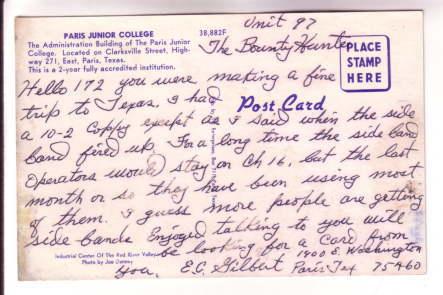 Unit 97
PARIS JUNIOR COLLEGE
38,882F
The Administration Building of The Paris Junior
College. Located on Clarksville Street, High-
way 271, East, Paris, Texas.
This is a 2-year fully accredited institution.
The Bounty Hunter
PLACE
STAMP
HERE
Post Card
Hello 172 you were making a fine
trip to Texas, I had
a 10-2 Coppy except as I said when the side
band fired up. For a long time the side band
Operators would stay on Ch 16, but the last
month or so they have been using most
of them. I guess more people are getting
side bands Enjoyed talking to you will
be looking for a Card from
you. E.C. Gilbert
1900 E. Washington
Paris Tex 75460
Industrial Center Of The Red River Valley
Photo by Joe